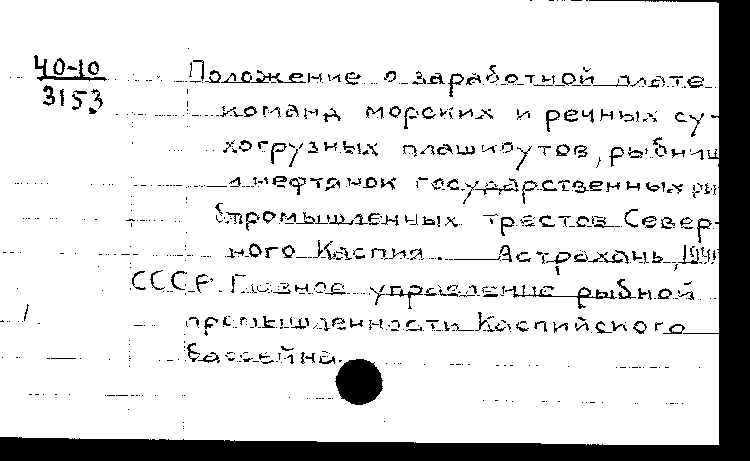 40-10
3153
Положение о заработной плате
команд морских и речных су-
хогрузных плашкоутов, рыбниц
и нефтянок государственных ры
бпромышленных трестов Север-
ного Каспия. Астрахань,
СССР. Главное управление рыбной
промышленности Каспийского
бассейна.